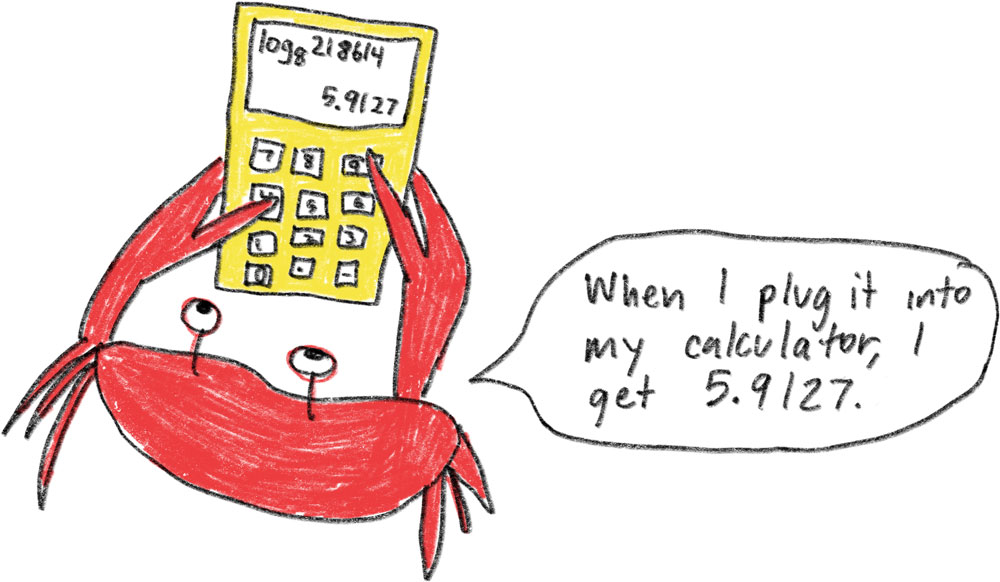 log₈218614
5.9127
7 8 9
4 5 6
1 2 3
0 . -
When I plug it into
my calculator, I
get 5.9127.